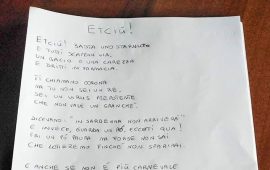 ETCIÙ!
ETCIÙ! BASTA UNO STARNUTO
E TUTTI SCAPPAN VIA,
UN BACIO O UNA CAREZZA
E DRITTI IN FARMACIA.
TI CHIAMANO CORONA
MA TU NON SEI UN RE,
SEI UN VIRUS
CHE NON VALE UN GRANCHÉ.
DICEVANO: "IN SARDEGNA NON ARRIVERÀ"
E INVECE, GUARDA UN PÒ, ECCOTI QUA!
FAI UN PÒ PAURA MA FORSE NON SAI
CHE LOTTEREMO FINCHÉ NON SPARIRAI.
E ANCHE SE NON È PIÙ CARNEVALE